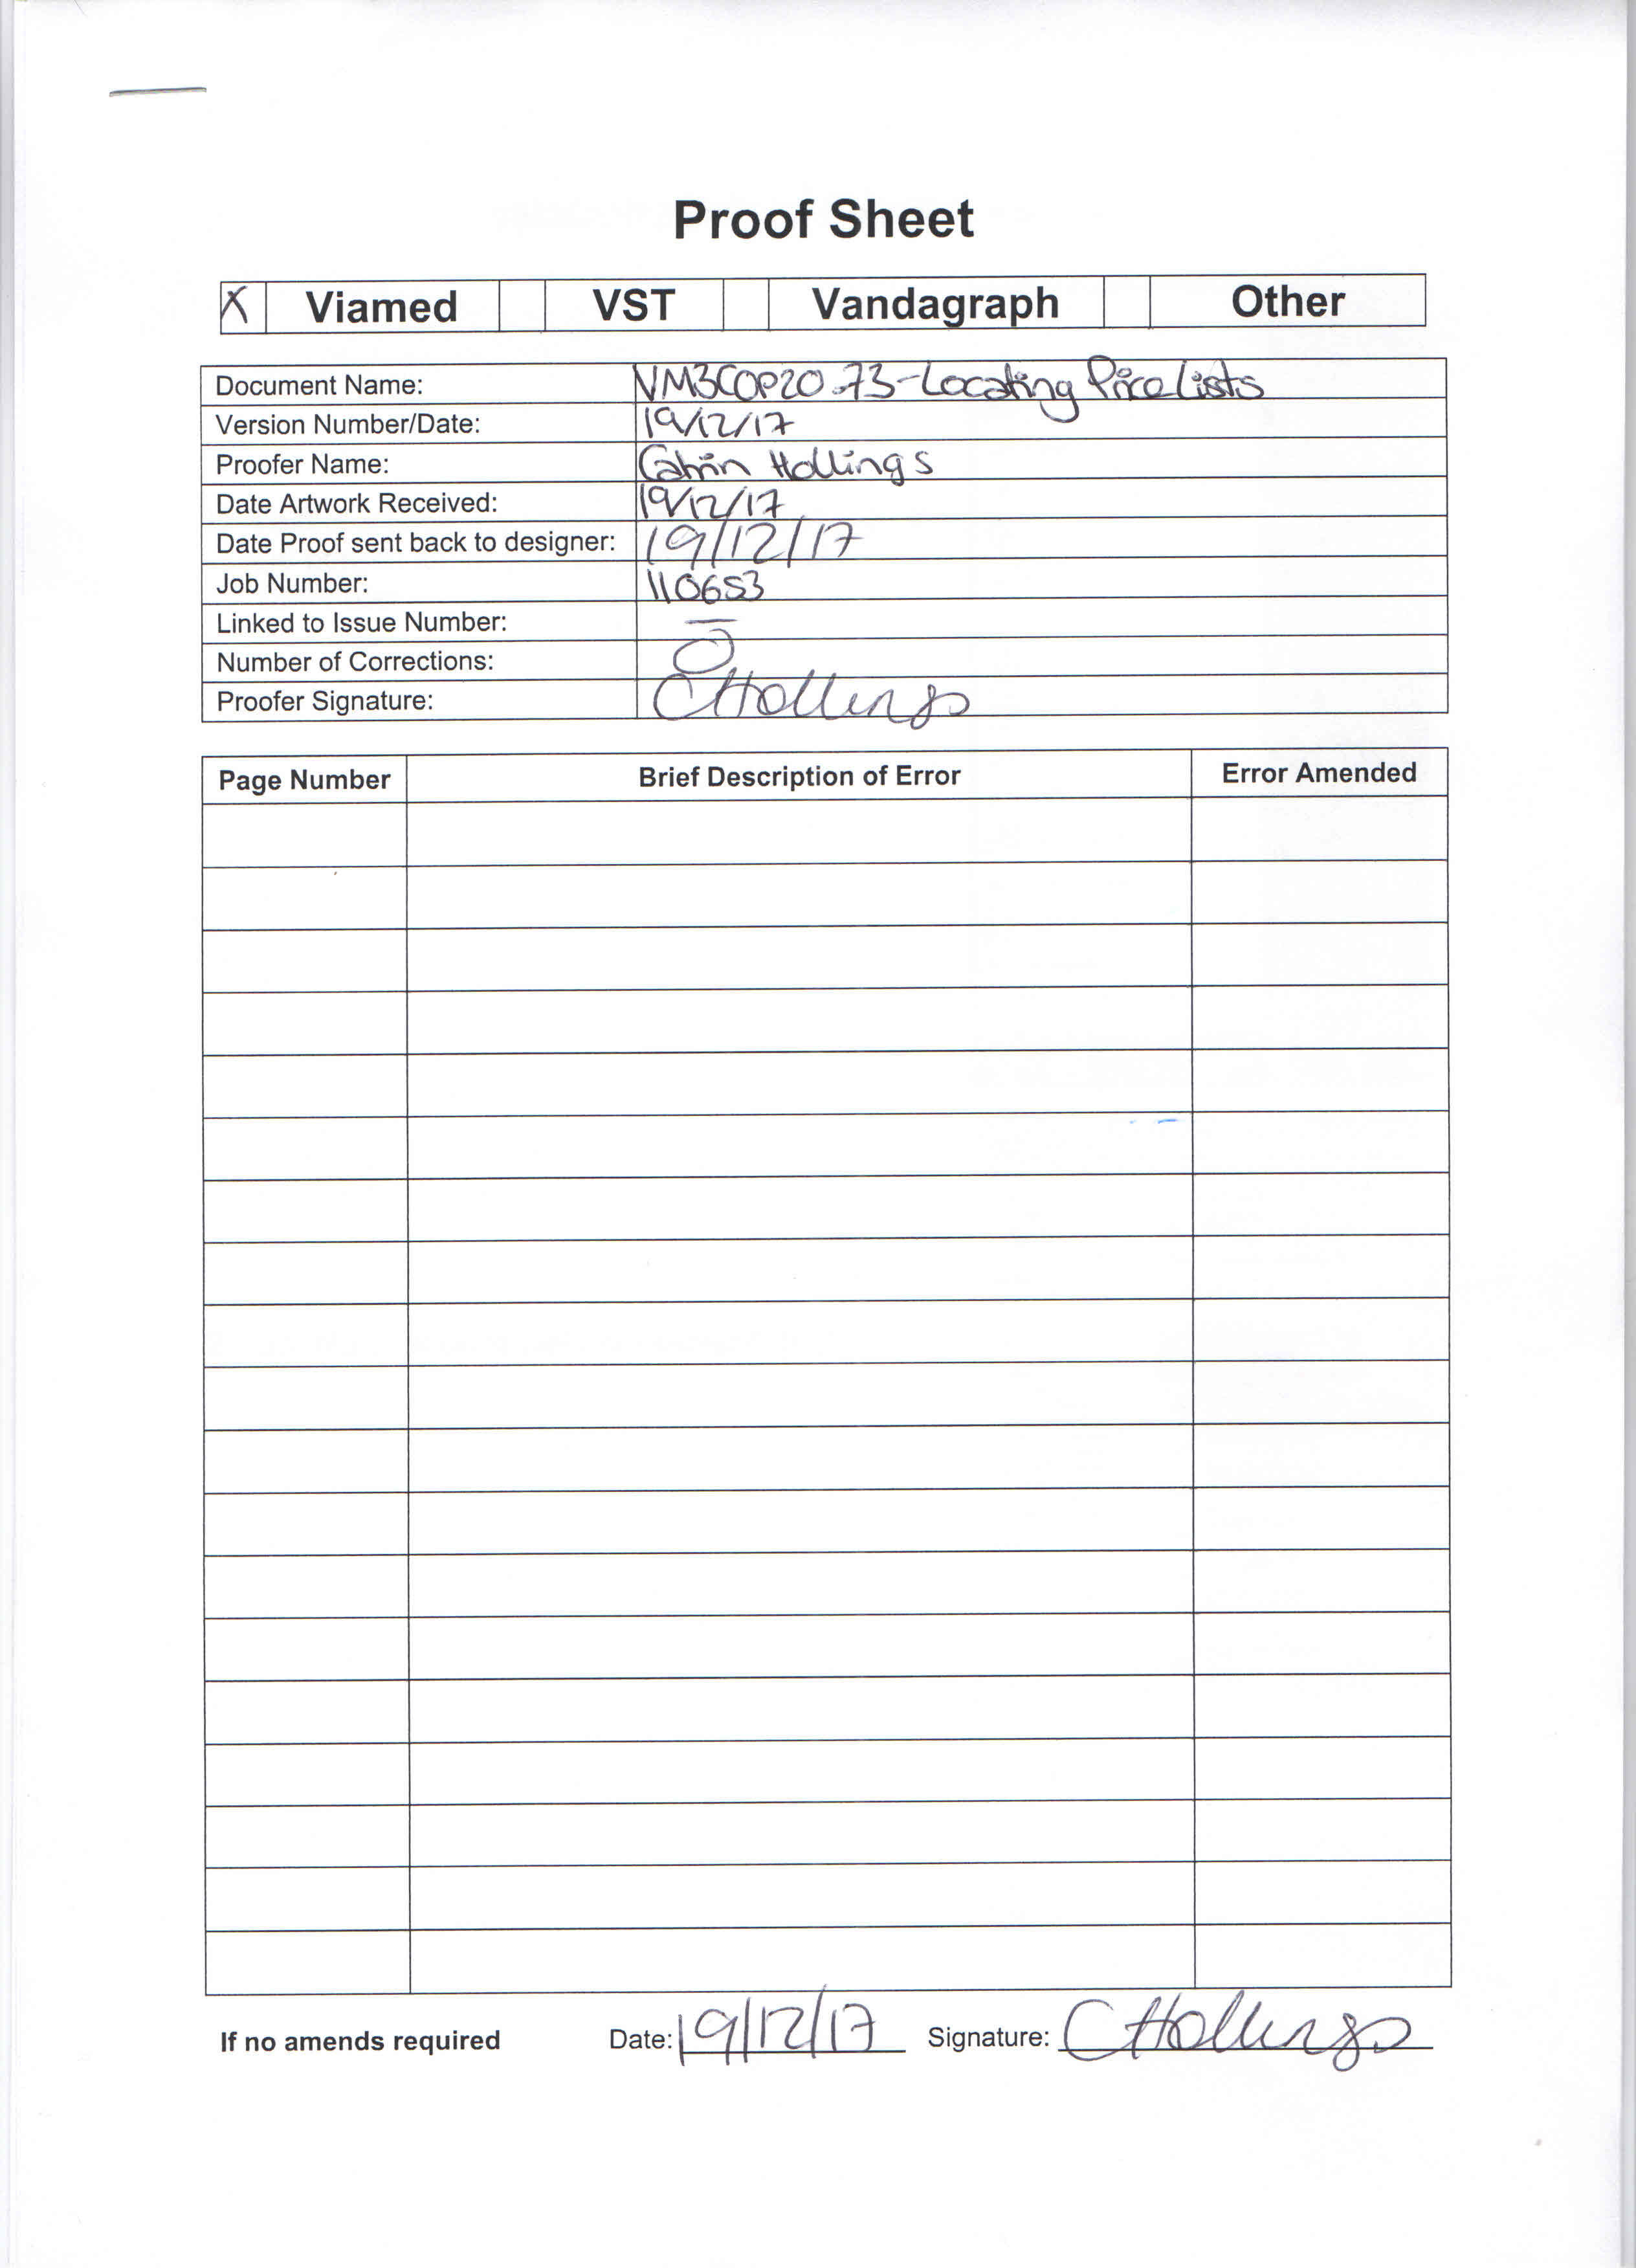 Proof Sheet
X Viamed VST Vandagraph Other
Document Name: VM3COP20.73-Locating Price Lists
Version Number/Date: 19/12/17
Proofer Name: Catrin Hollings
Date Artwork Received: 19/12/17
Date Proof sent back to designer: 19/12/17
Job Number: 110653
Linked to Issue Number: —
Number of Corrections: 0
Proofer Signature: CHollings
Page Number Brief Description of Error Error Amended
If no amends required Date: 19/12/17 Signature: CHollings